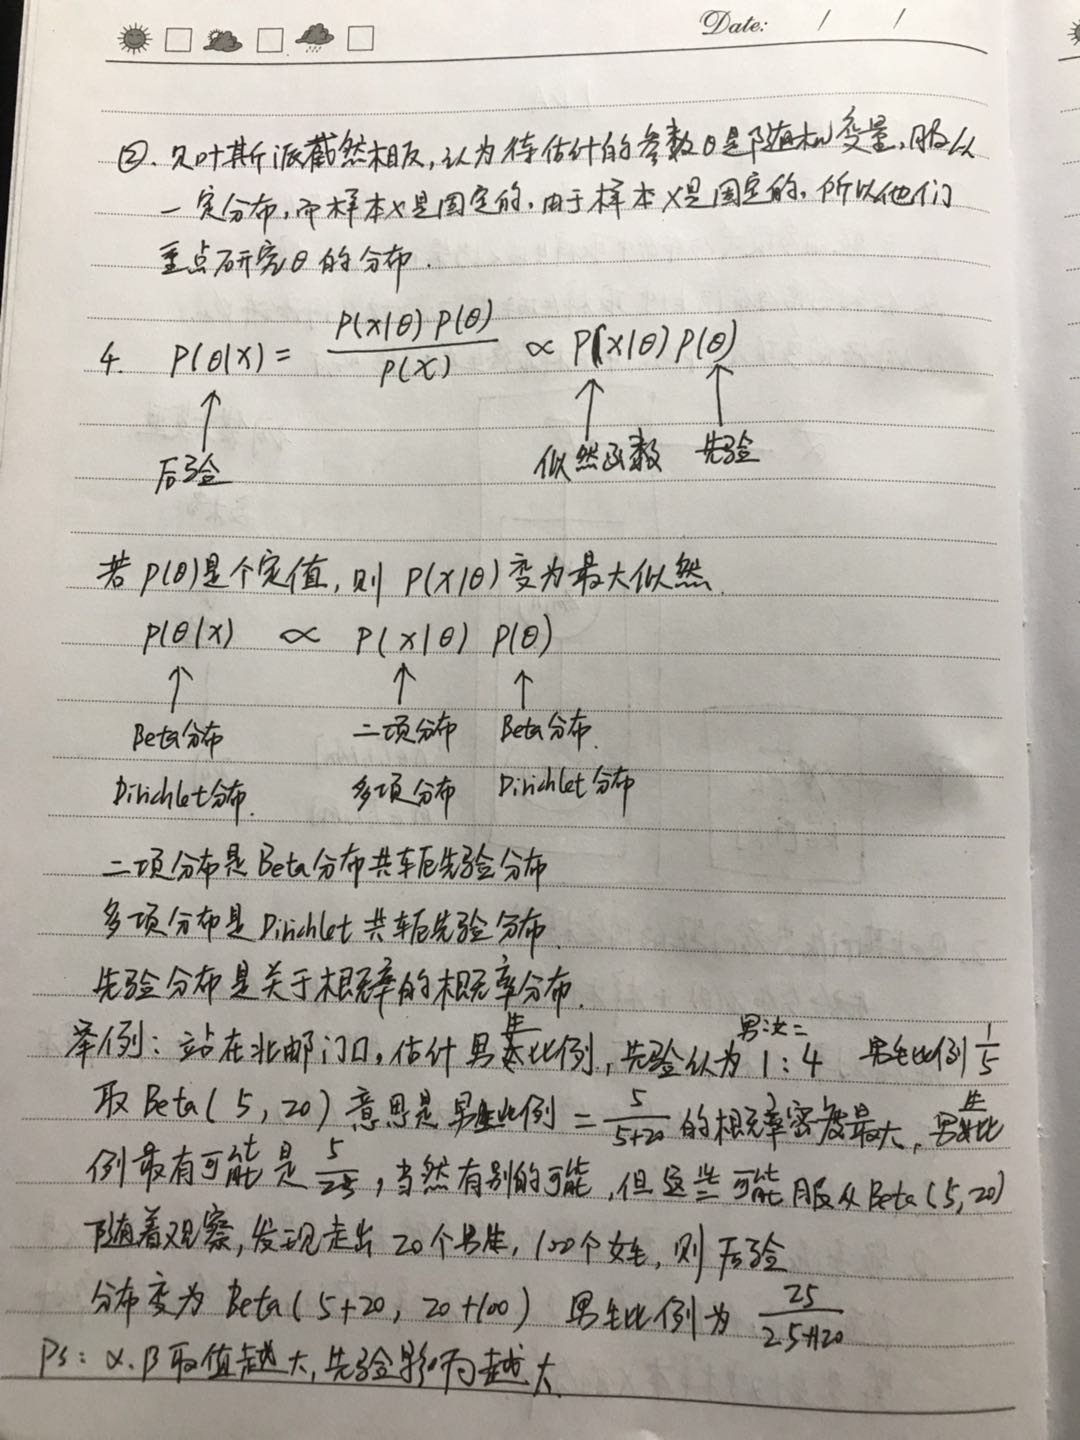 Date: / /
②. 贝叶斯派截然相反,认为待估计的参数θ是随机变量,服从
一定分布,而样本X是固定的.由于样本X是固定的.所以他们
重点研究θ的分布.
4. P(θ|X) = P(X|θ) P(θ) / P(X) ∝ P(X|θ) P(θ)
↑ ↑ ↑
后验 似然函数 先验
若P(θ)是个定值,则 P(X|θ)变为最大似然.
P(θ|X) ∝ P(X|θ) P(θ)
↑ ↑ ↑
Beta分布 二项分布 Beta分布.
Dirichlet分布. 多项分布 Dirichlet分布
二项分布是Beta分布共轭先验分布
多项分布是Dirichlet共轭先验分布.
先验分布是关于概率的概率分布.
举例: 站在北邮门口,估计男生比例,先验认为 男:女= 1:4 男生比例 1/5
取Beta(5,20) 意思是男生比例 = 5/(5+20) 的概率密度最大,男生比
例最有可能是 5/25 ,当然有别的可能,但这些可能服从Beta(5,20)
随着观察,发现走出 20个男生,100个女生,则后验
分布变为 Beta(5+20, 20+100) 男生比例为 25/(25+120)
Ps: α.β取值越大,先验影响越大.